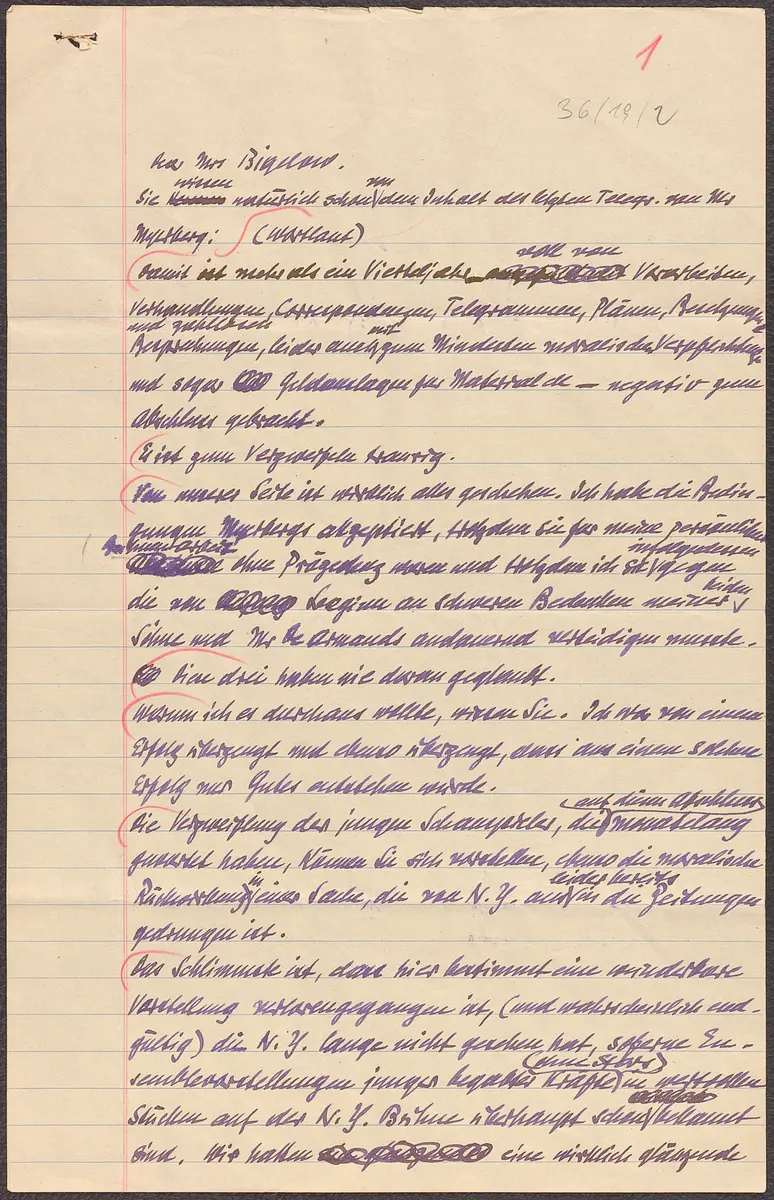 1
36/19/2
Dear Mrs Bigelow.
wissen von
Sie natürlich schon dem Inhalt des letzten Telegr. von Mr
Myerberg: (Wortlaut)
voll von
Damit ist mehr als ein Vierteljahr Vorarbeiten,
Verhandlungen, Correspondenzen, Telegrammen, Plänen,
und zahllosen mit
Besprechungen, leider auch zum Mindesten moralischen Verpflichtungen
und sogar Geldauslagen für Material etc — negativ zum
Abschluss gebracht.
Es ist zum Verzweifeln traurig.
Von unserer Seite ist wirklich alles geschehen. Ich habe die Bedin-
gungen Myerbergs akzeptiert, trotzdem sie für meine persönliche
infolgedessen
ohne Präzedenz waren und trotzdem ich sie gegen
beiden
die von Beginn an schweren Bedenken meiner
Söhne und Mr Armands andauernd verteidigen musste.
Diese drei haben nie daran geglaubt.
Warum ich es durchaus wollte, wissen Sie. Ich war von einem
Erfolg überzeugt und ebenso überzeugt, dass aus einem solchen
Erfolg nur Gutes entstehen würde.
(auf diesen Abschluss)
Die Verzweiflung der jungen Schauspieler, die monatelang
gewartet haben, können Sie sich vorstellen, ebenso die moralische
in leider bereits
Rückwirkung einer Sache, die von N.Y. aus in die Zeitungen
gedrungen ist.
Das Schlimmste ist, dass hier bestimmt eine wunderbare
Vorstellung verlorengegangen ist, (und wahrscheinlich end-
gültig) die N.Y. lange nicht gesehen hat, soferne En-
(ohne Stars)
semblevorstellungen junger begabter Kräfte in wertvollen
Stücken auf der N.Y. Bühne überhaupt schon bekannt
sind. Wir hatten eine wirklich glänzende